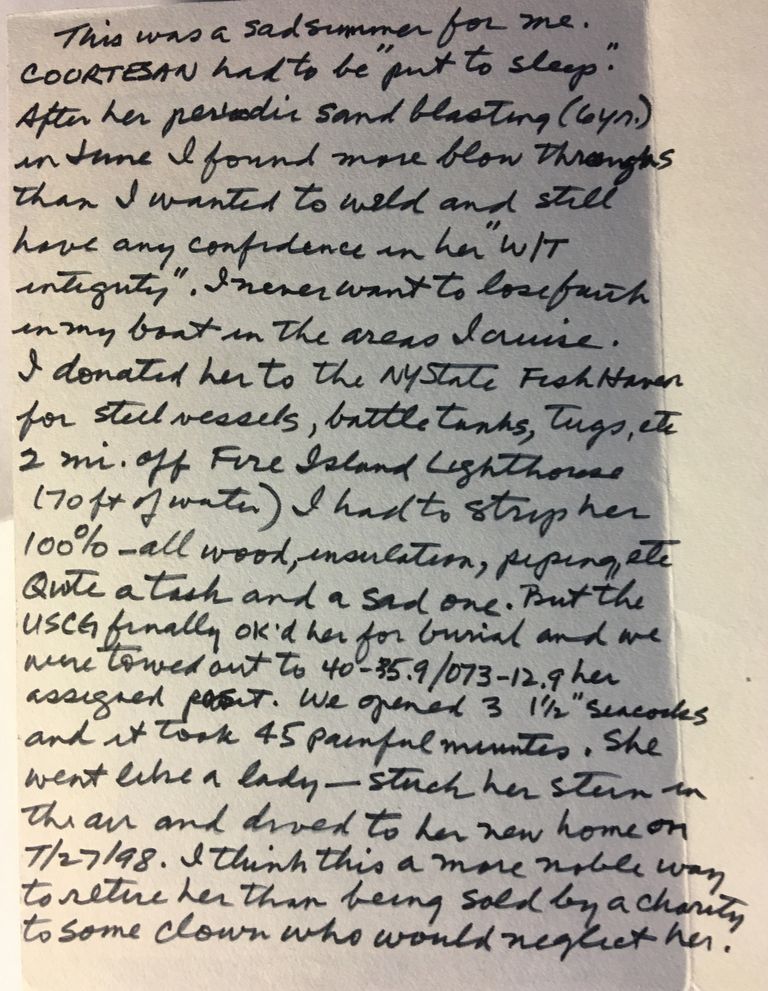 This was a sad summer for me.
COURTESAN had to be "put to sleep."
After her periodic sand blasting (6yr.)
in June I found more blow throughs
than I wanted to weld and still
have any confidence in her "W/T
integrity". I never want to lose faith
in my boat in the areas I cruise.
I donated her to the NYState Fish Haven
for steel vessels, battle tanks, tugs, etc
2 mi. off Fire Island Lighthouse
(70 ft of water) I had to strip her
100% - all wood, insulation, piping, etc
Quite a task and a sad one. But the
USCG finally OK'd her for burial and we
were towed out to 40-35.9/073-12.9 her
assigned post. We opened 3 1½" seacocks
and it took 45 painful minutes. She
went like a lady - stuck her stern in
the air and dived to her new home on
7/27/98. I think this a more noble way
to retire her than being sold by a charity
to some clown who would neglect her.